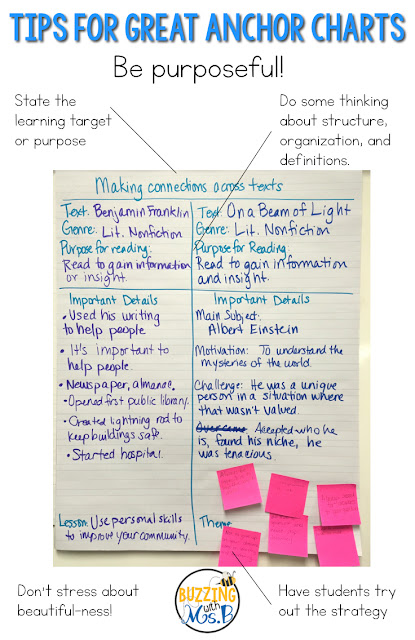 TIPS FOR GREAT ANCHOR CHARTS
Be purposeful!
State the
learning target
or purpose
Do some thinking
about structure,
organization, and
definitions.
Making connections across texts
Text: Benjamin Franklin
Genre: Lit. Nonfiction
Purpose for reading:
Read to gain information
or insight.
Text: On a Beam of Light
Genre: Lit. Nonfiction
Purpose for Reading:
Read to gain information
and insight.
Important Details
• Used his writing
to help people
• It's important to
help people.
• Newspaper, almanac.
• Opened first public library.
• Created lightning rod to
keep buildings safe.
• Started hospital.
Lesson: Use personal skills
to improve your community.
Important Details
Main Subject:
Albert Einstein
Motivation: To understand the
mysteries of the world.
Challenge: He was a unique
person in a situation where
that wasn't valued.
Overcame Accepted who he
is, found his niche, he
was tenacious.
Theme
Don't stress about
beautiful-ness!
BUZZING
with
Ms. B
Have students try
out the strategy